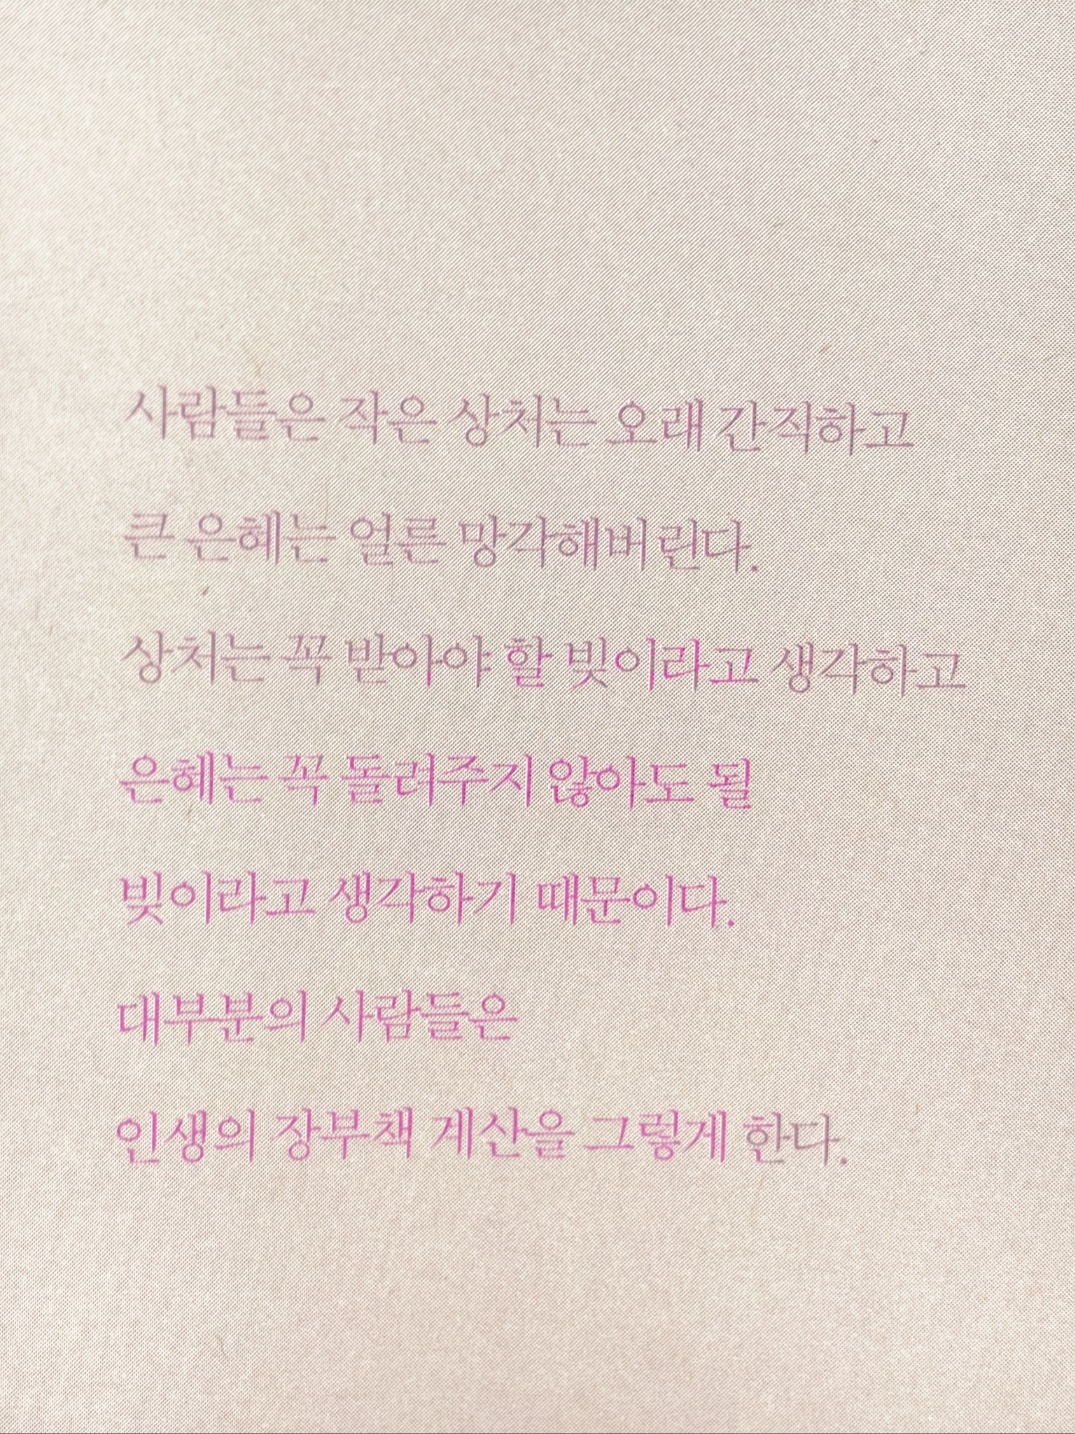 사람들은 작은 상처는 오래 간직하고
큰 은혜는 얼른 망각해버린다.
상처는 꼭 받아야 할 빚이라고 생각하고
은혜는 꼭 돌려주지 않아도 될
빚이라고 생각하기 때문이다.
대부분의 사람들은
인생의 장부책 계산을 그렇게 한다.